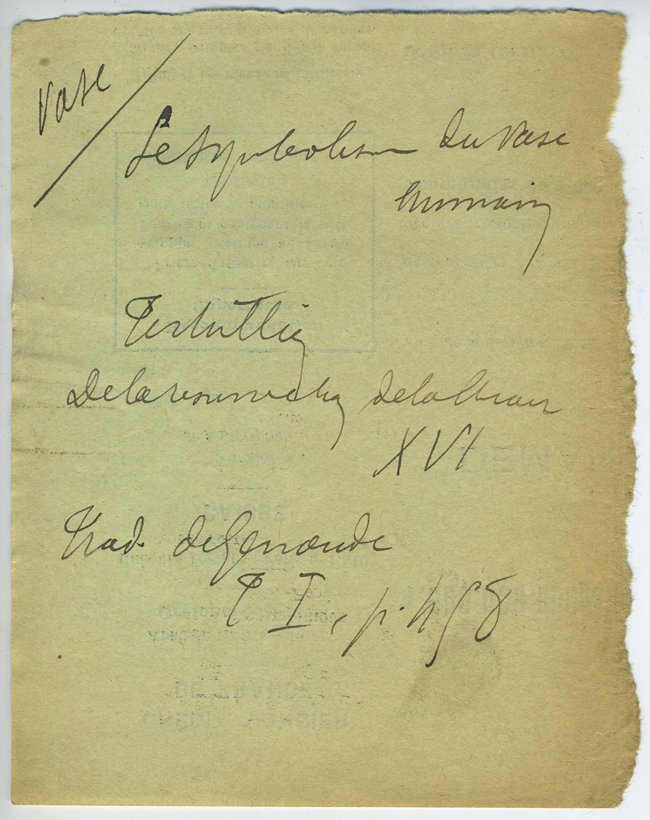 Vase
Le Symbolisme du Vase
humain
Tertullien
De la resurrection de la Chair
XVI
trad. de Genoude
T I, p. 458